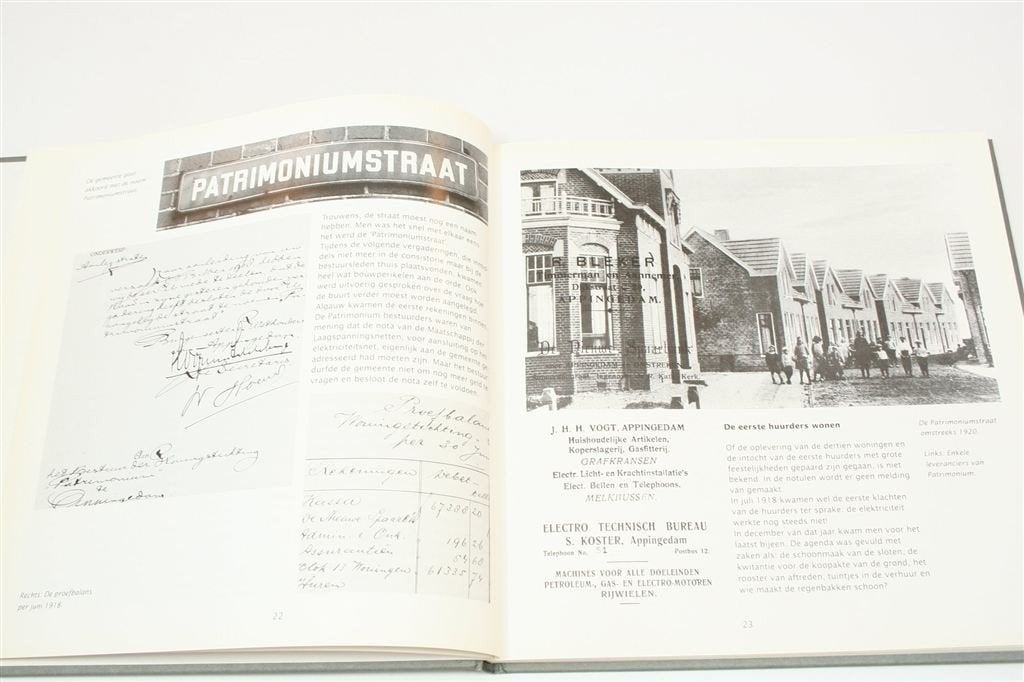 De gemeente gaat
akkoord met de naam
Patrimoniumstraat.
PATRIMONIUMSTRAAT
Trouwens, de straat moest nog een naam
hebben. Men was het snel met elkaar eens
het werd de 'Patrimoniumstraat'.
Tijdens de volgende vergaderingen, die
dels niet meer in de consistorie maar bij de
bestuursleden thuis plaatsvonden, kwamen
heel wat bouwperikelen aan de orde. Ook
werd uitvoerig gesproken over de vraag hoe
de buurt verder moest worden aangelegd.
Algauw kwamen de eerste rekeningen binnen.
De Patrimonium bestuurders waren van
mening dat de nota van de Maatschappij der
Laagspanningsnetten, voor aansluiting op het
elektriciteitsnet, eigenlijk aan de gemeente ge
adresseerd had moeten zijn. Maar het bestuur
durfde de gemeente niet om nog meer geld te
vragen en besloot de nota zelf te voldoen.
ONDERWERP
Aanleg straat
Secretaris
Aan
het Bestuur der Woningstichting
Patrimonium
te
Appingedam
Proefbalans
Woningstichting
per 30 Juni
Rekeningen Debet
Kassa 67388 20
De Nieuwe Spaarbk
Admin. & Onk. 196 26
Assurantien 54 60
Blok 13 Woningen 61335 74
Huren
Rechts: De proefbalans
per juni 1918.
22
R. BLEKER
Timmerman en Aannemer
Dijkstraat
APPINGEDAM.
De Nieuwe Spaarbank
APPINGEDAM
R. Kath. Kerk
J. H. H. VOGT, APPINGEDAM
Huishoudelijke Artikelen,
Koperslagerij, Gasfitterij.
GRAFKRANSEN
Electr. Licht- en Krachtinstallatie's
Elect. Bellen en Telephoons,
MELKBUSSEN.
ELECTRO TECHNISCH BUREAU
S. KOSTER, Appingedam
Telephoon No. 51 Postbus 12.
MACHINES VOOR ALLE DOELEINDEN
PETROLEUM-, GAS- EN ELECTRO-MOTOREN
RIJWIELEN.
De eerste huurders wonen
Of de oplevering van de dertien woningen en
de intocht van de eerste huurders met grote
feestelijkheden gepaard zijn gegaan, is niet
bekend. In de notulen wordt er geen melding
van gemaakt.
In juli 1918 kwamen wel de eerste klachten
van de huurders ter sprake: de elektriciteit
werkte nog steeds niet!
In december van dat jaar kwam men voor het
laatst bijeen. De agenda was gevuld met
zaken als: de schoonmaak van de sloten, de
kwitantie voor de koopakte van de grond, het
rooster van aftreden, tuintjes in de verhuur en
wie maakt de regenbakken schoon?
De Patrimoniumstraat
omstreeks 1920.
Links: Enkele
leveranciers van
Patrimonium.
23